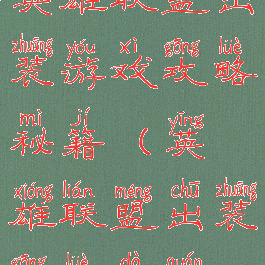 英雄联盟出
zhuāng yóu xì gōng lüè
装游戏攻略
mì jí yīng
秘籍（英
xióng lián méng chū zhuāng
雄联盟出装
gōng lüè dà quán